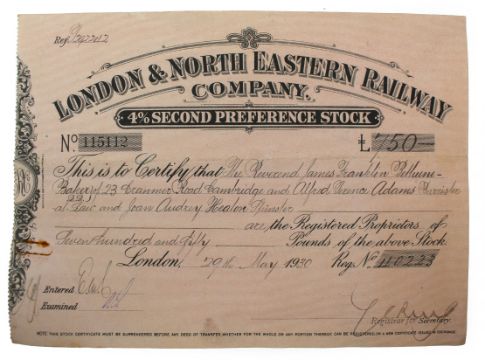 Reg.
LONDON & NORTH EASTERN RAILWAY
COMPANY.
4% SECOND PREFERENCE STOCK
No 115112 £ 750—
This is to Certify that The Reverend James Franklin Bethune-
Baker of 23 Cranmer Road Cambridge and Alfred Adams Barrister
at Law and Joan Audrey Heaton Spinster
are the Registered Proprietors of
Seven hundred and fifty Pounds of the above Stock.
London, 29th May 1930 Reg. No 110223
Entered
Examined
Registrar for Secretary.
NOTE: THIS STOCK CERTIFICATE MUST BE SURRENDERED BEFORE ANY DEED OF TRANSFER, WHETHER FOR THE WHOLE OR ANY PORTION THEREOF CAN BE REGISTERED OR A NEW CERTIFICATE ISSUED IN EXCHANGE.